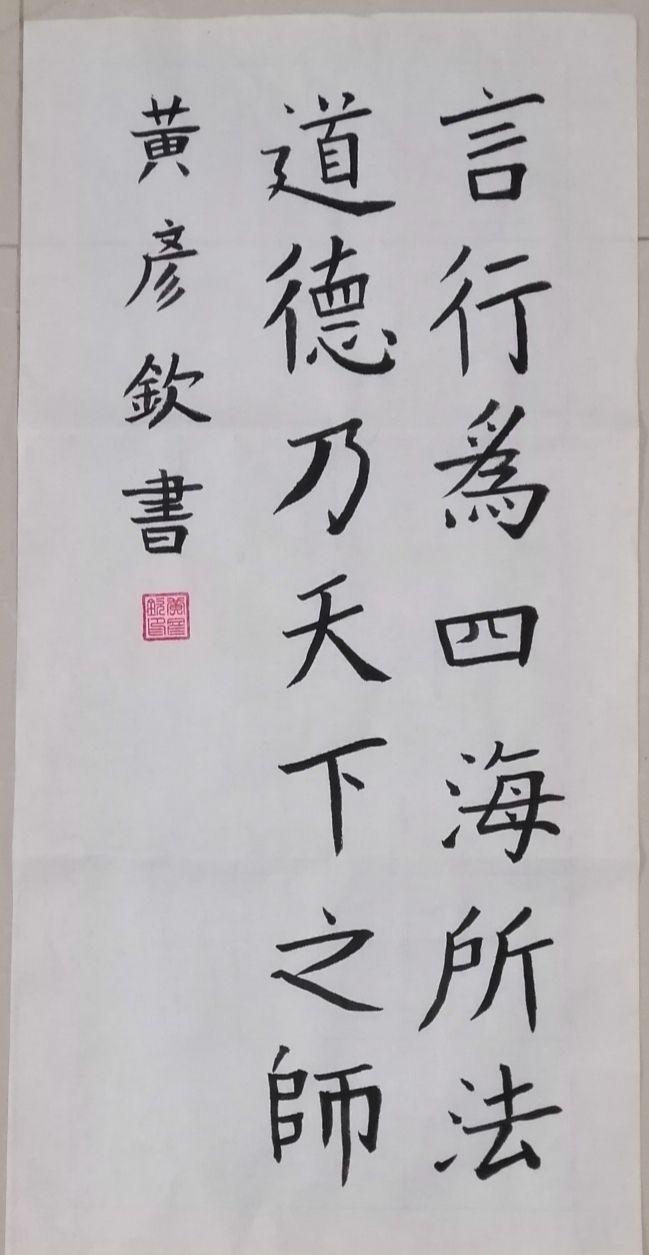 言行爲四海所法
道德乃天下之師
黃彥欽書